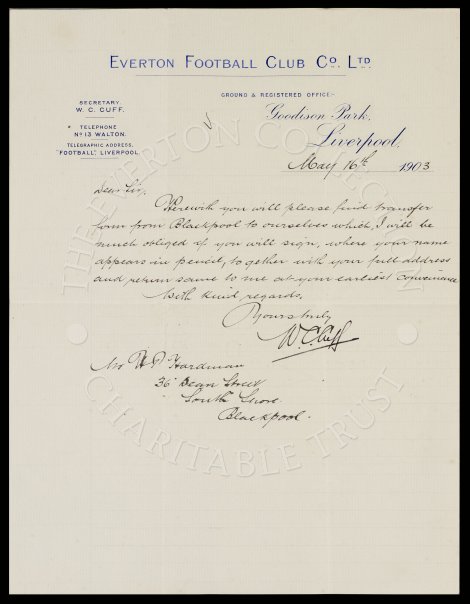 EVERTON FOOTBALL CLUB CO. LTD.
GROUND & REGISTERED OFFICE:-
Goodison Park,
Liverpool,
SECRETARY.
W. C. CUFF.
TELEPHONE
NO 13 WALTON.
TELEGRAPHIC ADDRESS,
"FOOTBALL", LIVERPOOL.
May 16th 1903
Dear Sir,
Herewith you will please find transfer
form from Blackpool to ourselves which I will be
much obliged if you will sign, where your name
appears in pencil, together with your full address
and return same to me at your earliest convenience
With kind regards,
Yours truly
W. C. Cuff
Mr H P Hardman
36 Dean Street
South Shore
Blackpool.
THE EVERTON COLLECTION
CHARITABLE TRUST